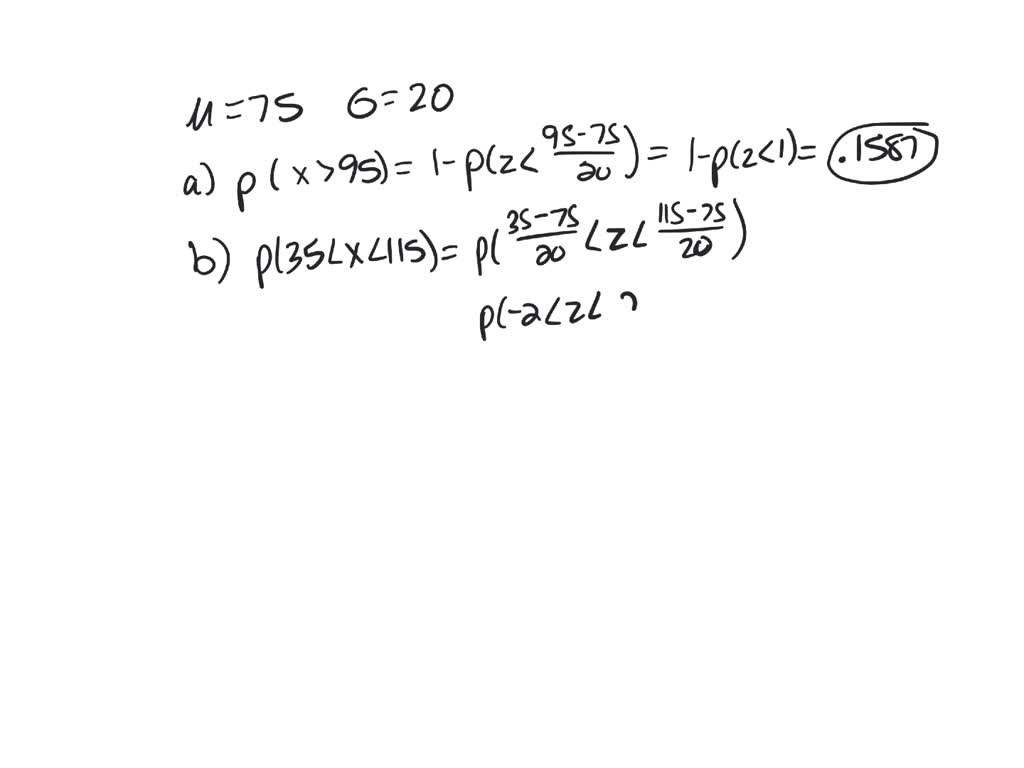 μ = 75 σ = 20
a) p(x > 95) = 1 - p(z < (95-75)/20) = 1 - p(z < 1) = .1587
b) p(35 < x < 115) = p((35-75)/20 < z < (115-75)/20)
p(-2 < z <